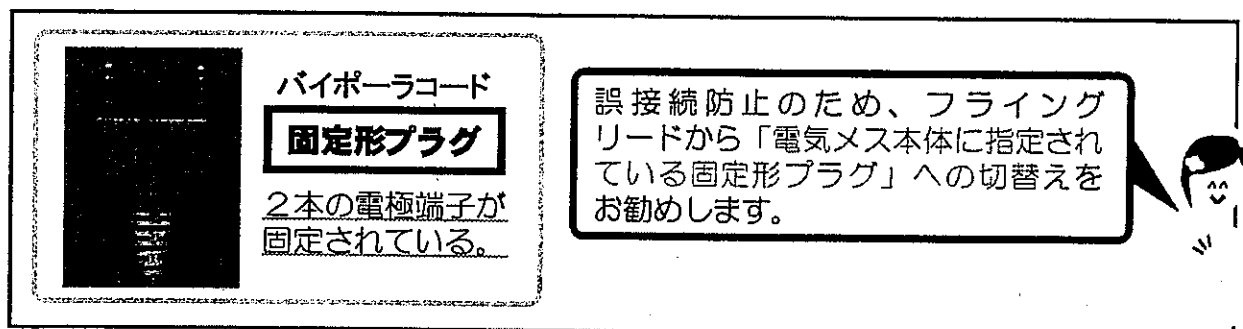 バイポーラコード
固定形プラグ
２本の電極端子が
固定されている。
誤接続防止のため、フライング
リードから「電気メス本体に指定され
ている固定形プラグ」への切替えを
お勧めします。